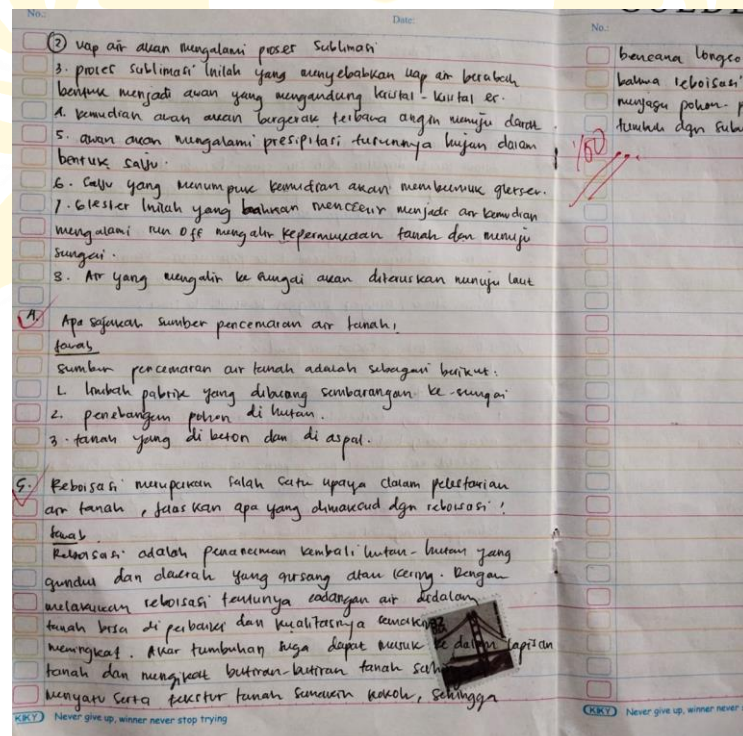 No.:
Date:
② uap air akan mengalami proses sublimasi
3. proses sublimasi inilah yang menyebabkan uap air berubah
bentuk menjadi awan yang mengandung kristal-kristal es.
4. kemudian awan akan bergerak terbawa angin menuju darat
5. awan akan mengalami presipitasi turunnya hujan dalam
bentuk salju.
6. salju yang menumpuk kemudian akan membentuk gletser.
7. Gletser inilah yang mencair menjadi air kemudian
mengalami run off mengalir kepermukaan tanah dan menuju
sungai.
8. Air yang mengalir ke sungai akan diteruskan menuju laut
4. Apa sajakah sumber pencemaran air tanah!
Jawab
sumber pencemaran air tanah adalah sebagai berikut:
1. limbah pabrik yang dibuang sembarangan ke-sungai
2. penebangan pohon di hutan.
3. tanah yang di beton dan di aspal.
5. Reboisasi merupakan salah satu upaya dalam pelestarian
air tanah, jelaskan apa yang dimaksud dgn reboisasi!
Jawab
Reboisasi adalah penanaman kembali hutan-hutan yang
gundul dan daerah yang gersang atau kering. Dengan
melakukan reboisasi tentunya cadangan air didalam
tanah bisa di perbaiki dan kualitasnya semakin
meningkat. Akar tumbuhan juga dapat masuk ke dalam lapisan
tanah dan mengikat butiran-butiran tanah
menyatu serta tekstur tanah semakin kokoh, sehingga
KIKY Never give up, winner never stop trying
No.:
bencana longso
bahwa reboisasi
menjaga pohon-p
tumbuh dgn subu
100
KIKY Never give up, winner never